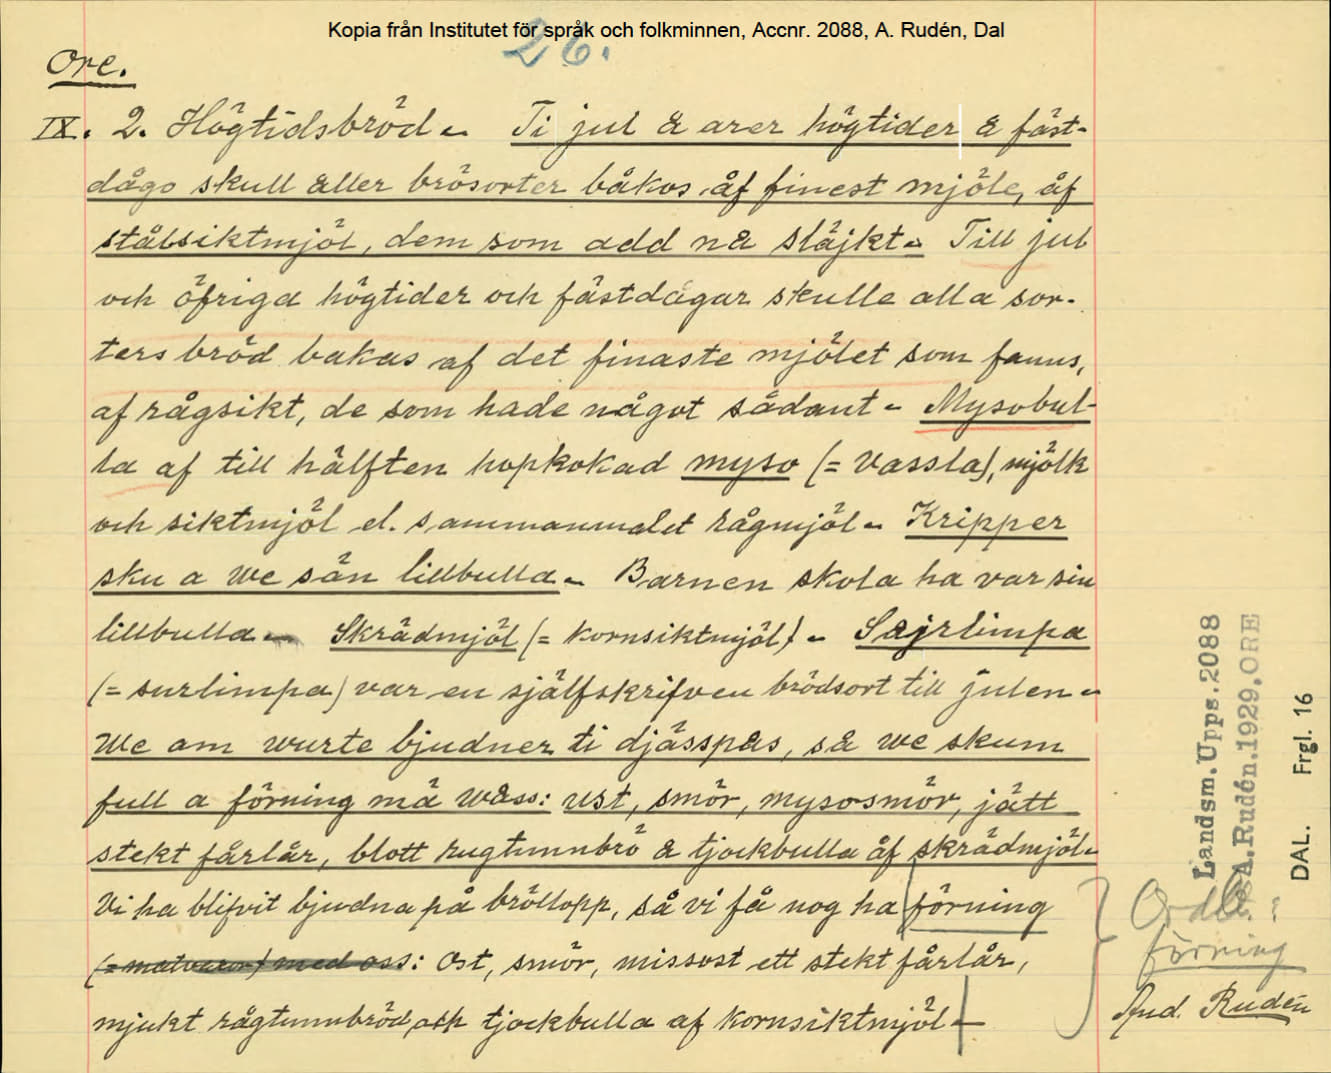 Kopia från Institutet för språk och folkminnen, Accnr. 2088, A. Rudén, Dal
26.
Ore.
IX. 2. Högtidsbröd. – Ti jul & arer högtider & fäst-
dågo skull aller brösorter båkas åf finest mjöle, åf
stålsiktmjöl, dem som add na släjkt. – Till jul
och öfriga högtider och fästdagar skulle alla sor-
ters bröd bakas af det finaste mjölet som fanns,
af rågsikt, de som hade något sådant – Mysobul-
la af till hälften hopkokad myso (= vassla), mjölk
och siktmjöl el. sammanmalet rågmjöl. – Kripper
sku a we sån lillbulla. – Barnen skola ha var sin
lillbulla. – Skrädmjöl (= kornsiktmjöl) – Sajrlimpa
(= surlimpa) var en själfskrifven brödsort till julen –
We am wurte bjudner ti djässpas, sa we skum
full a förning mä wass: ust, smör, mysosmör, jätt
stekt fårlår, blott rugtunnbrö & tjockbulla åf skrädmjöl. –
Vi ha blifvit bjudna på bröllopp, så vi få nog ha förning
(= matvaror) med oss: Ost, smör, missost ett stekt fårlår,
mjukt rågtunnbröd och tjockbulla af kornsiktmjöl –
Landsm. Upps. 2088
A. Rudén. 1929. ORE
DAL. Frgl. 16
förning
And. Rudén